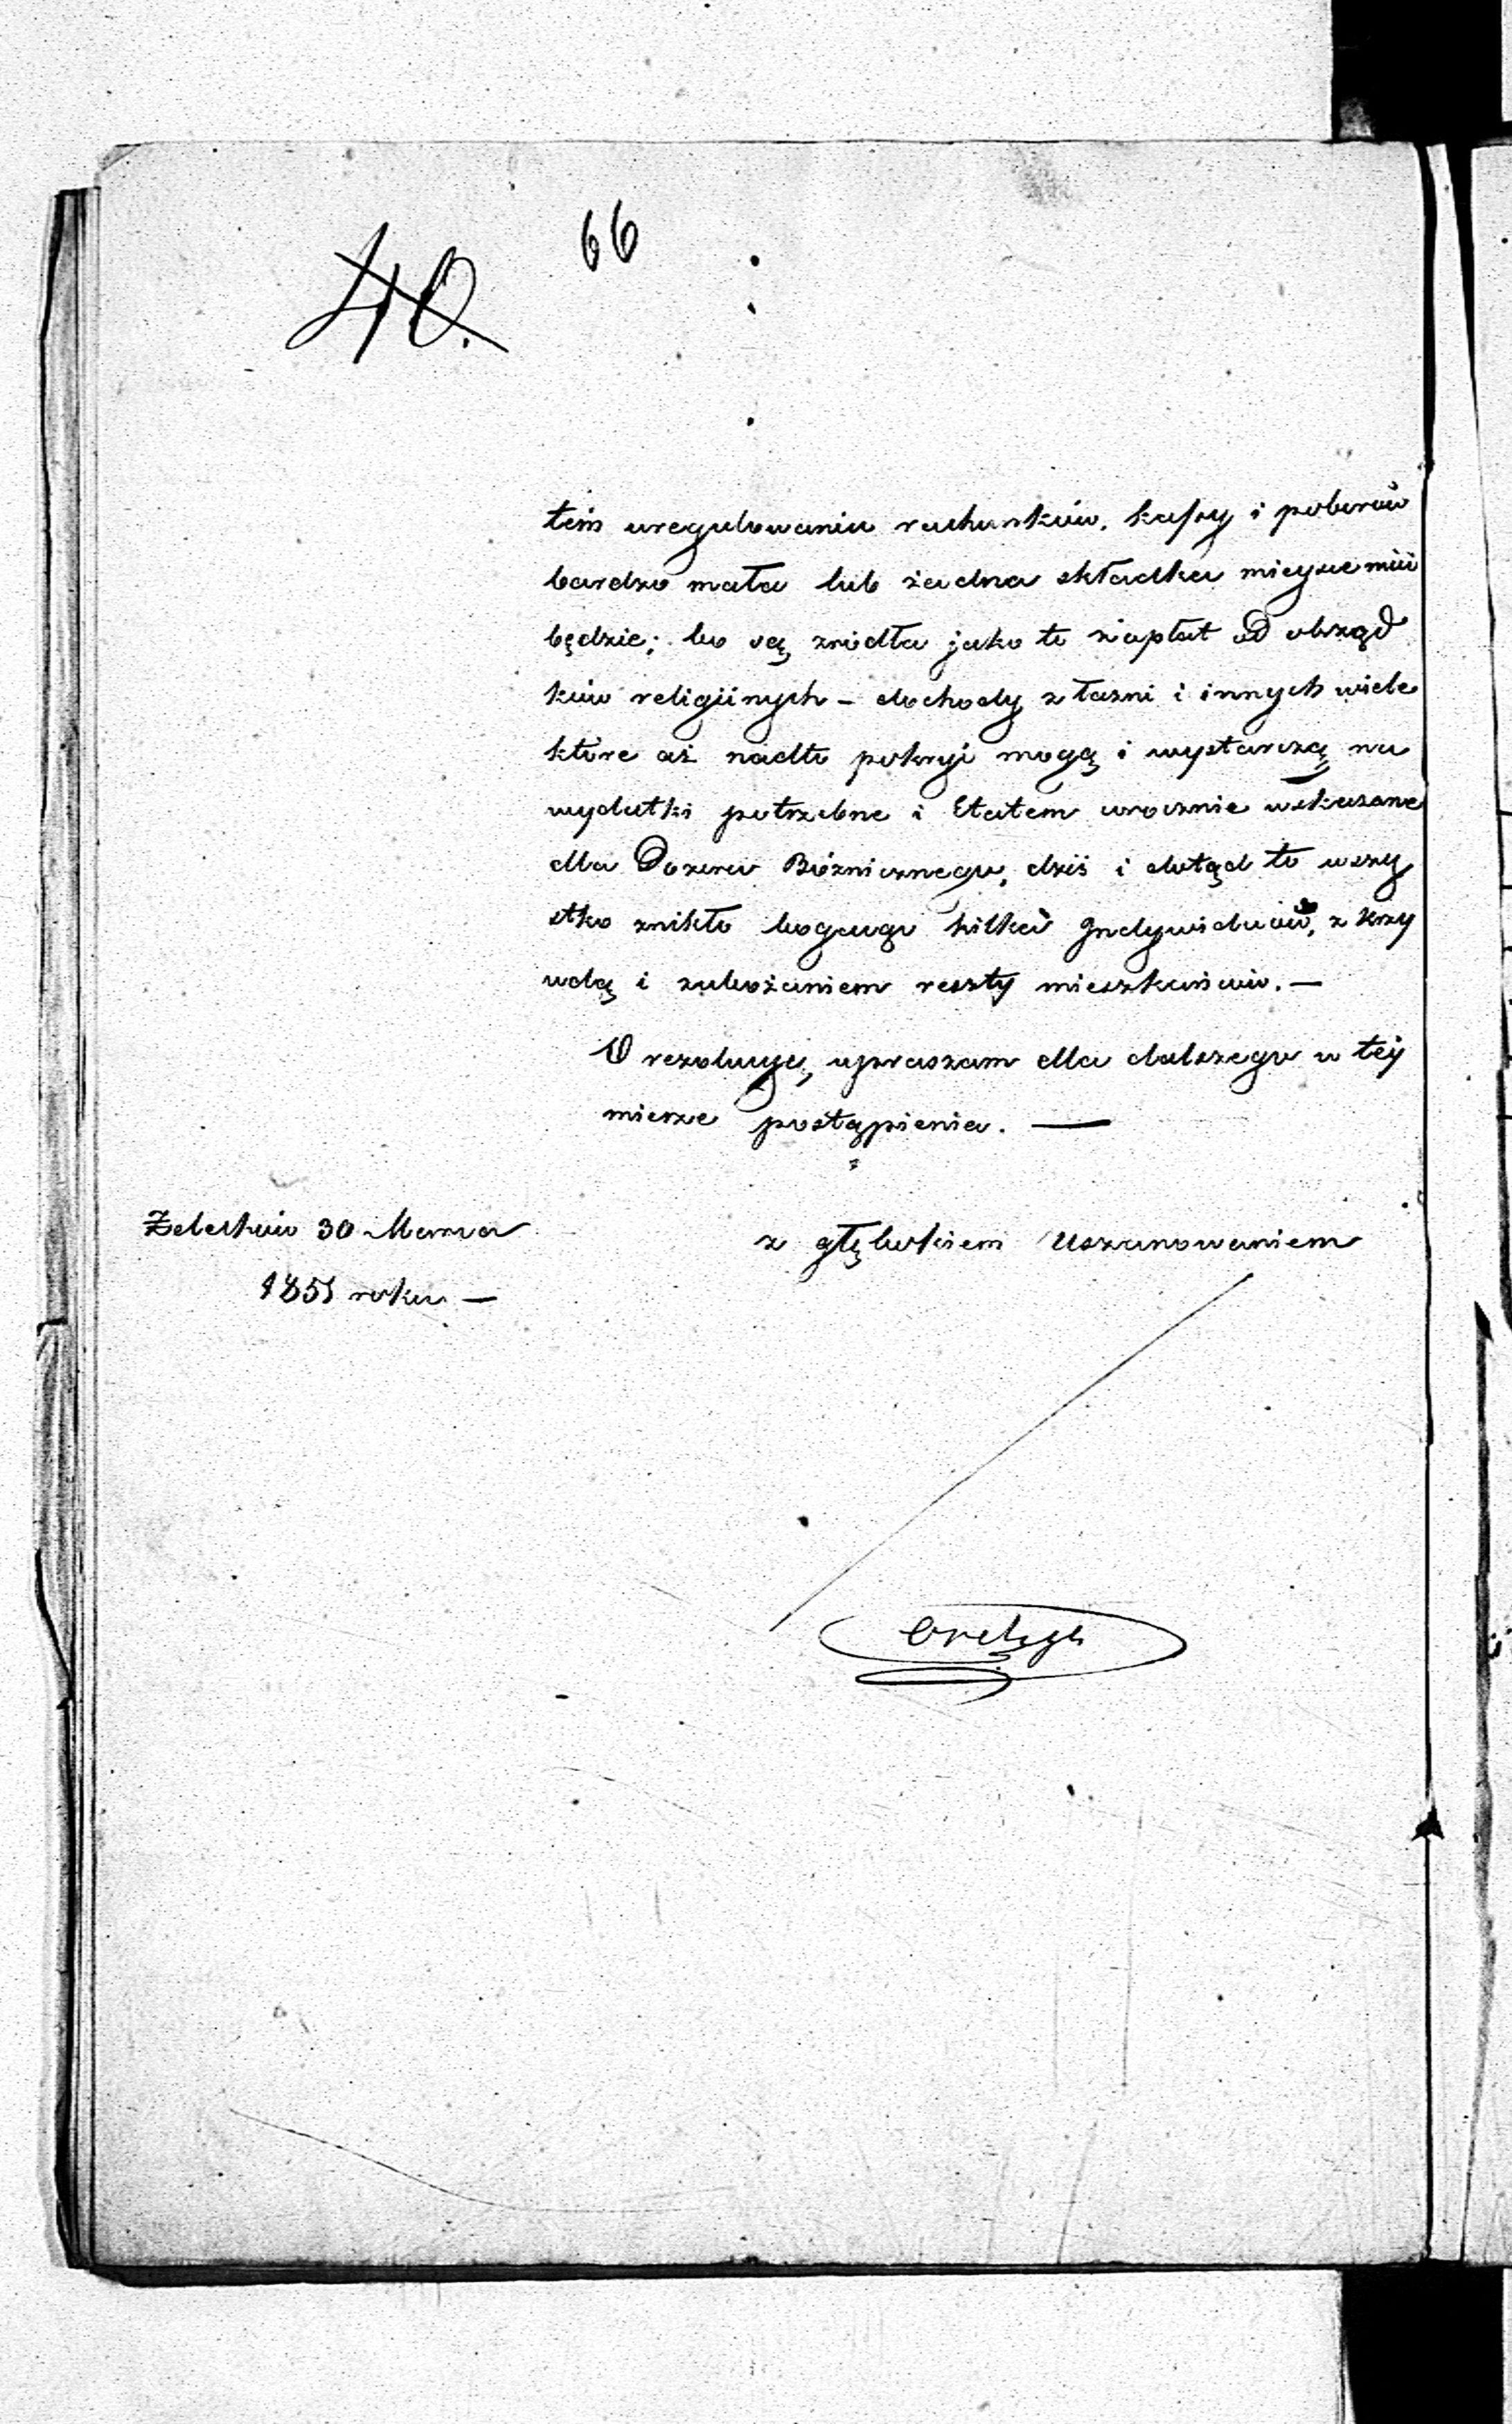 66
40.
tem uregulowaniu rachunków, kassy i poborów
bardzo mała lub żadna składka mieysce mii
będzie; bo są zródła jako to z opłat od obrząd
ków religiinych – dochody z łazni i innych wiele
które aż nadto pokryć mogą i wystarczą na
wydatki potrzebne i Etatem urocznie wskazane
dla Dozoru Bóżnicznego, dziś i dotąd to wszy
stko znikło bogacąc kilku Indywiduów, z krzy
wdą i zubożaniem reszty mieszkańców. —
O rezolucyę, upraszam dla dalszego w téy
mierze postąpienia. —
Żelechów 30 Marca
1851 roku —
z głębokiem Uszanowaniem